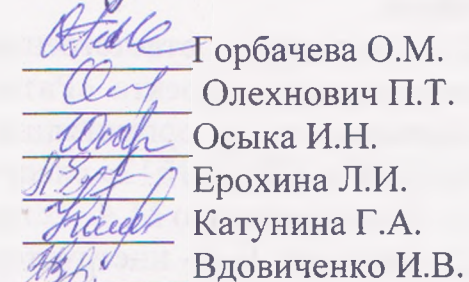 Горбачева О.М.
Олехнович П.Т.
Осыка И.Н.
Ерохина Л.И.
Катунина Г.А.
Вдовиченко И.В.